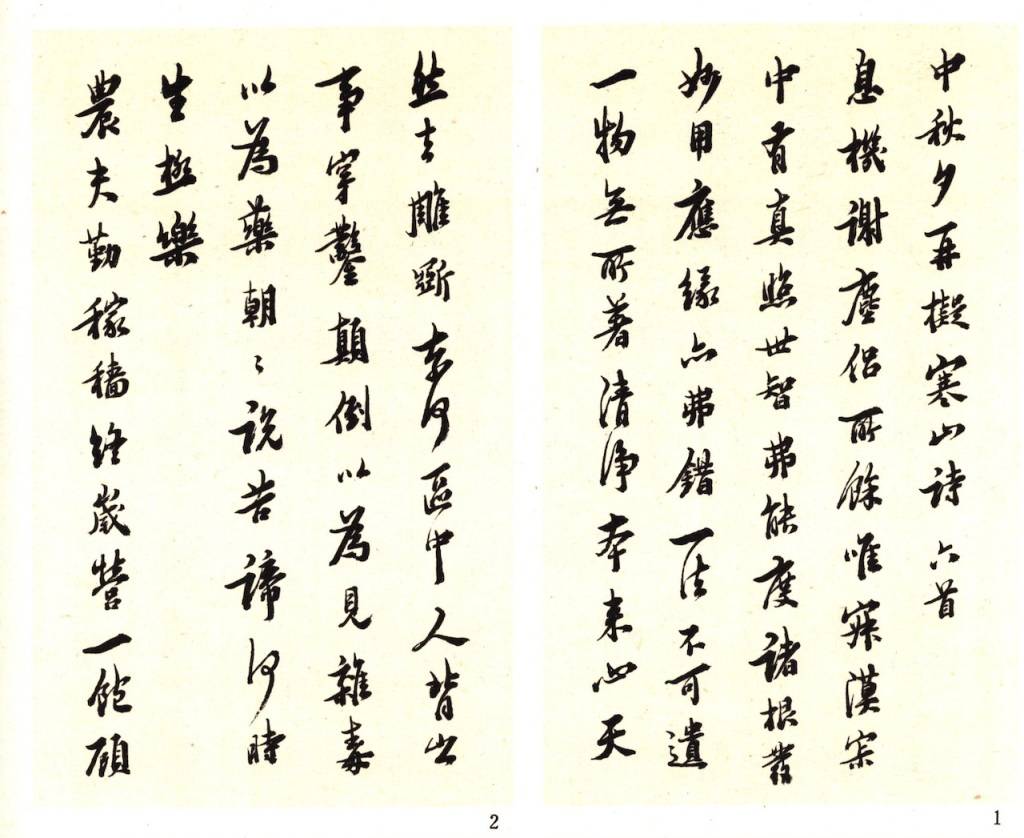 中秋夕再擬寒山詩六首
息機謝塵侶所餘唯寂漠宗
中有真照世智弗能度諸根發
妙用應緣亦弗錯一法不可遺
一物無所著清淨本來心天
1
然去雕斲奈何區中人皆出
事穿鑿顛倒以為見雜毒
以為藥朝〻說苦諦何時
生極樂
農夫勤稼穡終歲營一飽顧
2